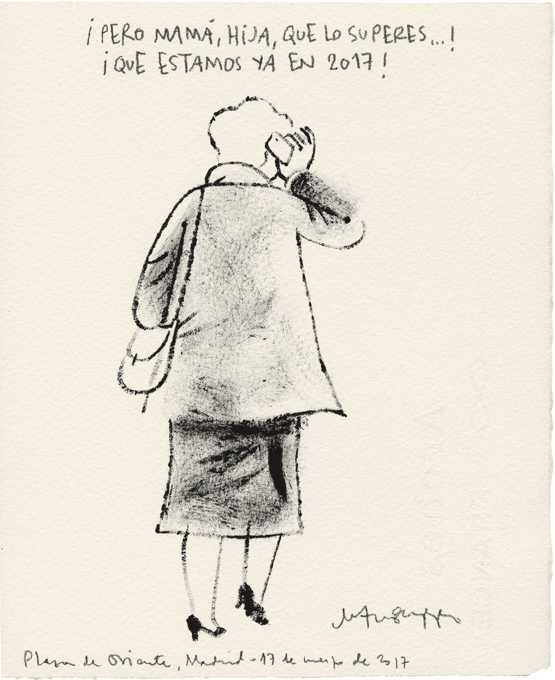 ¡PERO MAMÁ, HIJA, QUE LO SUPERES...!
¡QUE ESTAMOS YA EN 2017!
Plaza de Oriente, Madrid - 17 de marzo de 2017